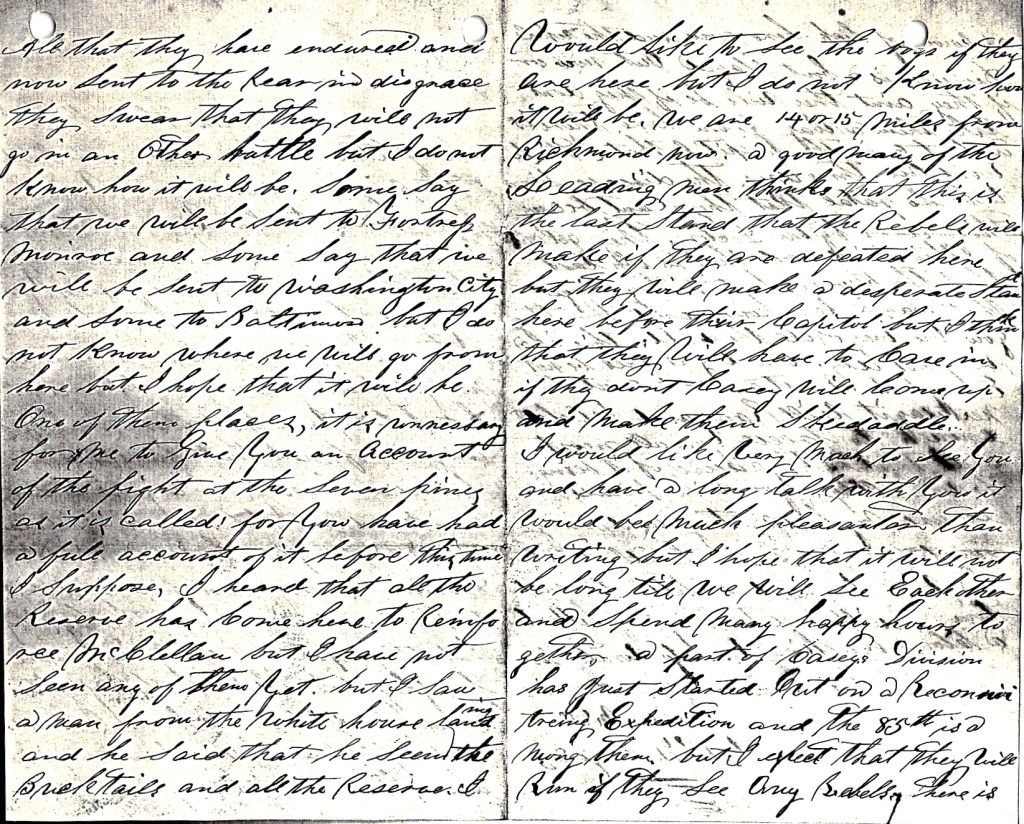 All that they have endured and
now sent to the Rear in disgrace
they swear that they will not
go in an other battle but I do not
know how it will be. Some say
that we will be sent to Fortress
Monroe and some say that we
will be sent to Washington City
and some to Baltimore but I do
not know where we will go from
here but I hope that it will be
One of them places, it is unnessary
for Me to Give You an Account
of the fight at the Seven pines
as it is called! for You have had
a full account of it before this time
I suppose, I heard that all the
Reserve has Come here to Reinfo
rce McClellan but I have not
seen any of them Yet. but I saw
a man from the White house landing
and he said that he seen the
Bucktails and all the Reserve. I
Would Like to see the boys if they
are here but I do not Know how
it will be. we are 14 or 15 Miles from
Richmond now. a good many of the
Leading men thinks that this is
the last Stand that the Rebels will
Make if they are defeated here
but they will make a desperate Stand
here before their Capitol but I think
that they Will have to Cave in
if they dont Casey Will Come up
and Make them Skedaddle..
I would like Very Much to See You
and have a long talk with You it
would bee Much pleasanter than
writing but I hope that it will not
be long till We Will See Each other
and Spend Many happy hours to
gether, a part of Caseys Division
has Just Started Out on a Reconnoi
tering Expedition and the 85th is a
mong them but I expect that they Will
Run if they See Any Rebels, There is